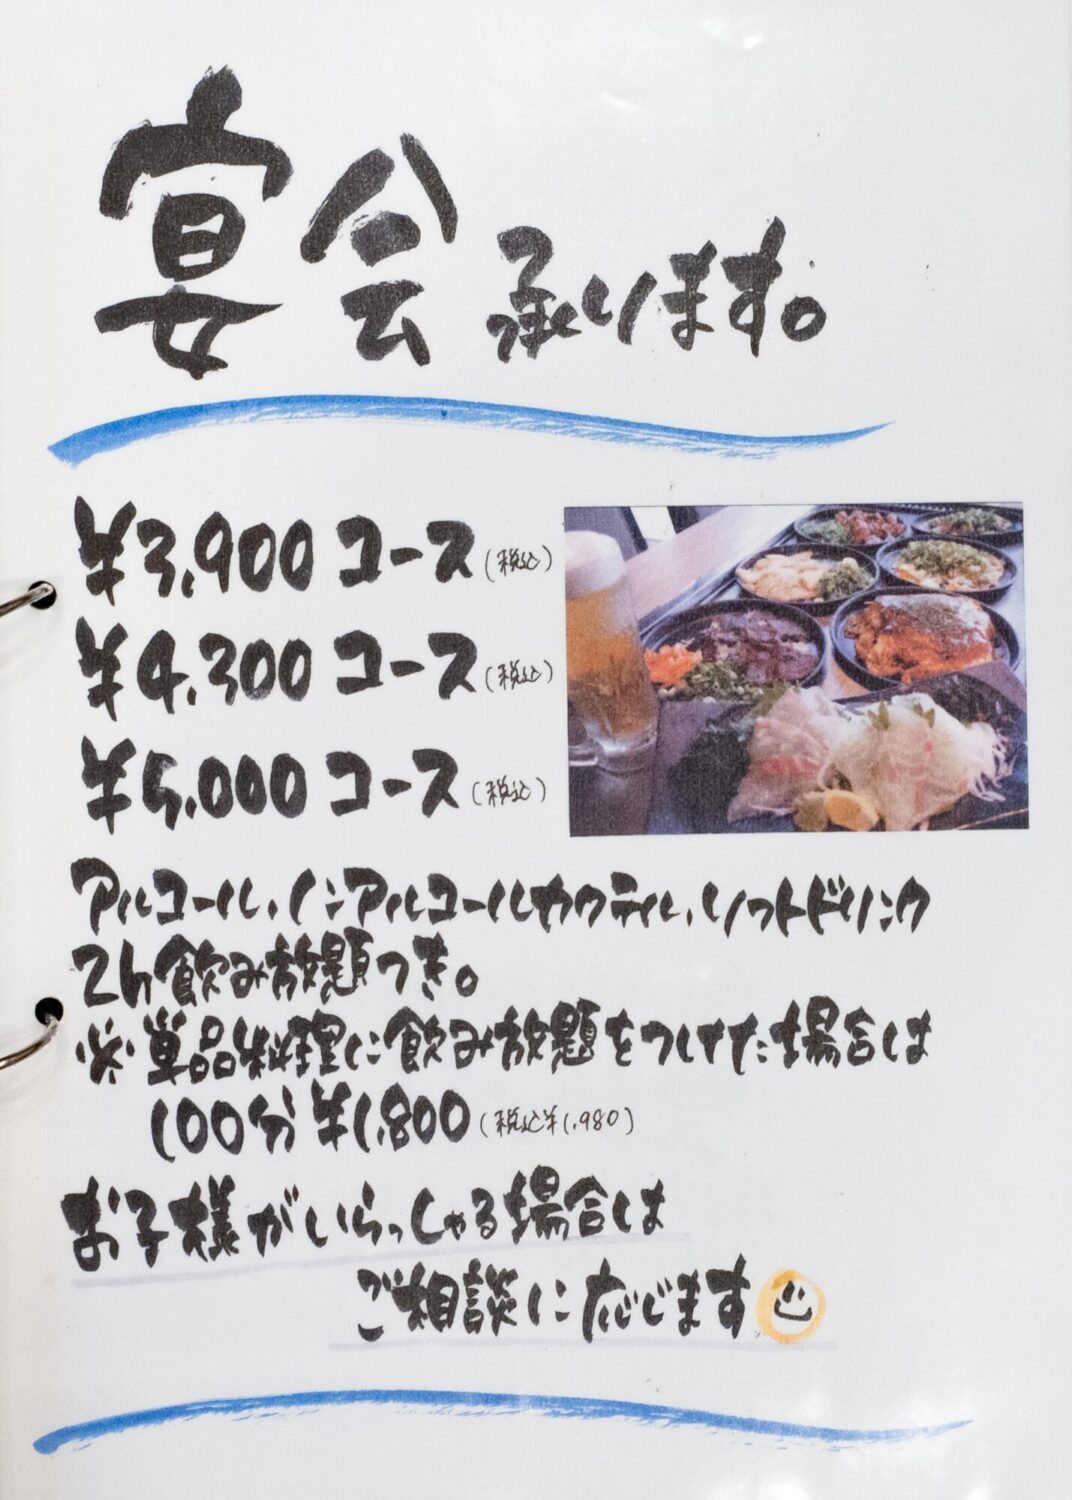 宴会承ります。
¥3,900コース(税込)
¥4,300コース(税込)
¥5,000コース(税込)
アルコール、ノンアルコールカクテル、ソフトドリンク
2h飲み放題つき。
※単品料理に飲み放題をつけた場合は
100分 ¥1,800(税込¥1,980)
お子様がいらっしゃる場合は
ご相談に応じます